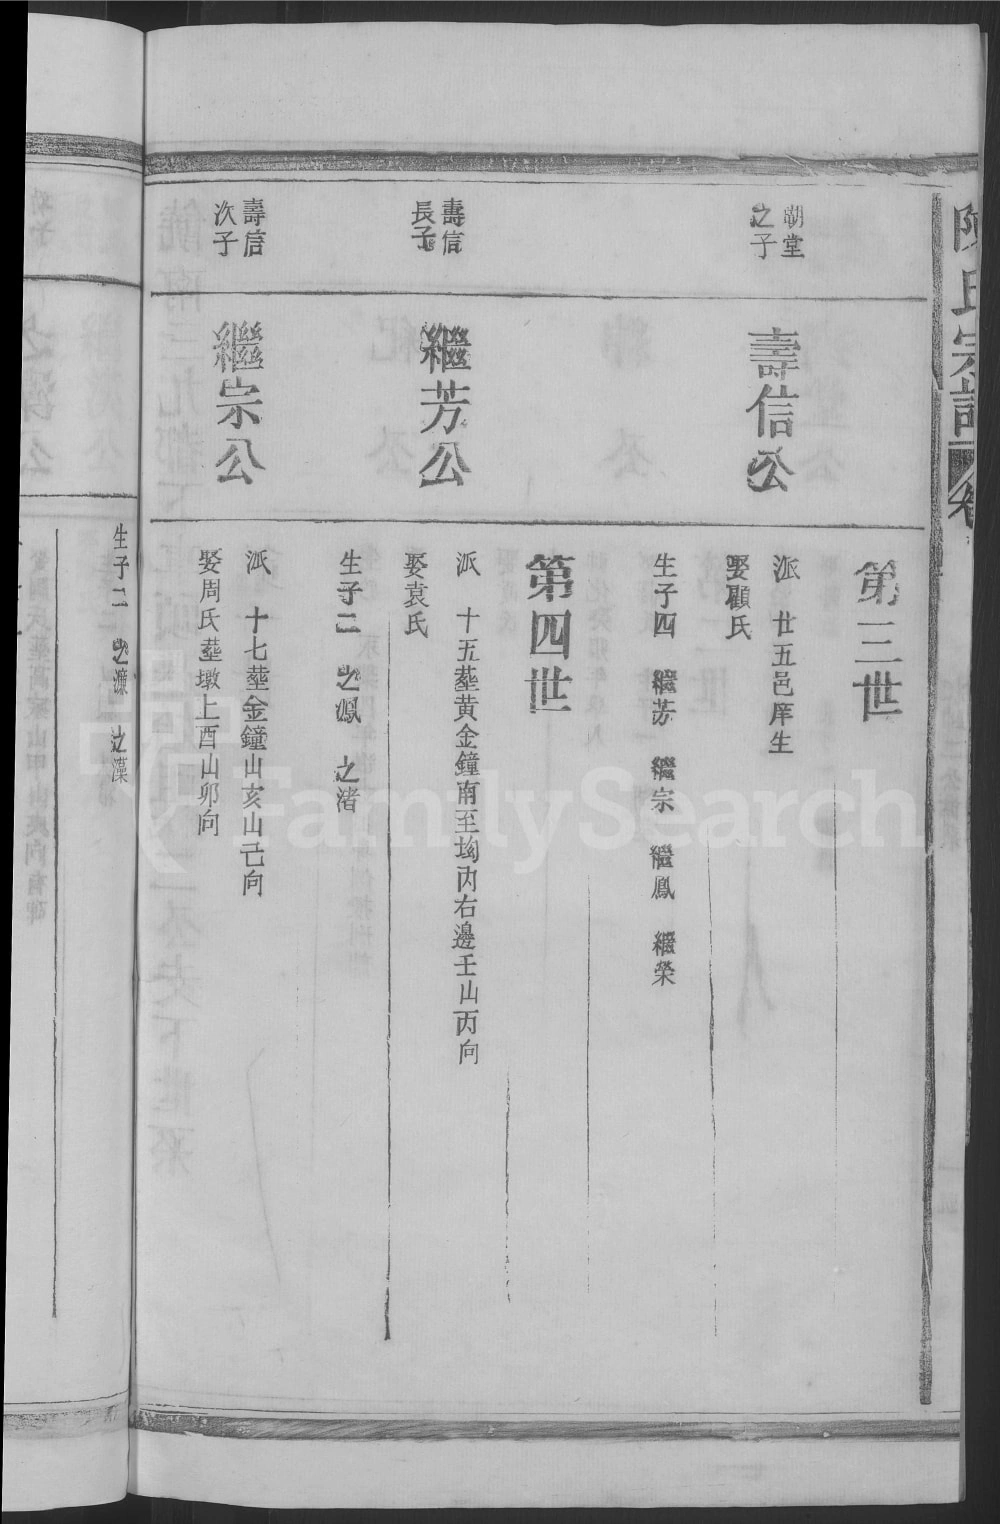 陳氏宗譜 卷
第三世
朝堂
之子
壽信公
派 廿五邑庠生
娶顧氏
生子四 繼芳 繼宗 繼鳳 繼榮
第四世
壽信
長子
繼芳公
派 十五塟黄金鐘南至坳内右邊壬山丙向
娶袁氏
生子二 之鳳 之渚
壽信
次子
繼宗公
派 十七塟金鐘山亥山己向
娶周氏塟墩上酉山卯向
生子二 之濂 之藻
FamilySearch